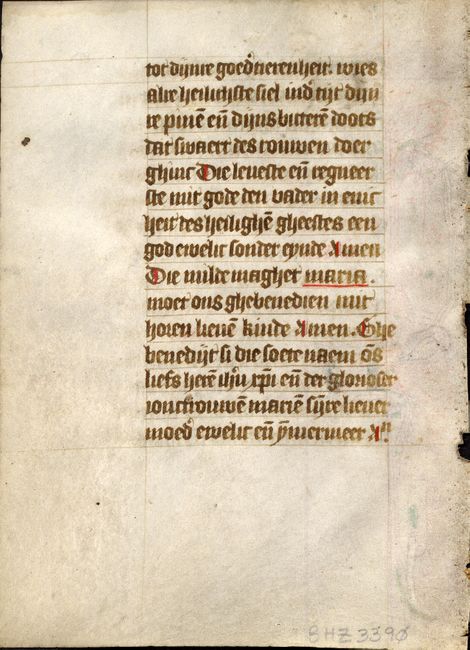 tot dijnre goed̓tierenheit. wies
alre heilichste siel ind̓ tijt dijn
re pinē eñ dijns bitterē doots
dat swaert des rouwen doer
ghinc Die levefte eñ regneer
ste mit gode den vader in enic
heit des heilighē gheestes een
god ewelic sonder eynde Amen
Die milde maghet maria.
moet ons ghebenedien mit
horen lieuē kinde Amen. Ghe
benedijt si die soete naem ōs
liefs herē ihū xp̄i eñ der glorioser
ioncfrouwē mariē sijnre lieuer
moed̓ ewelic eñ ȳmermeer Aᵐ.
8HZ 3390